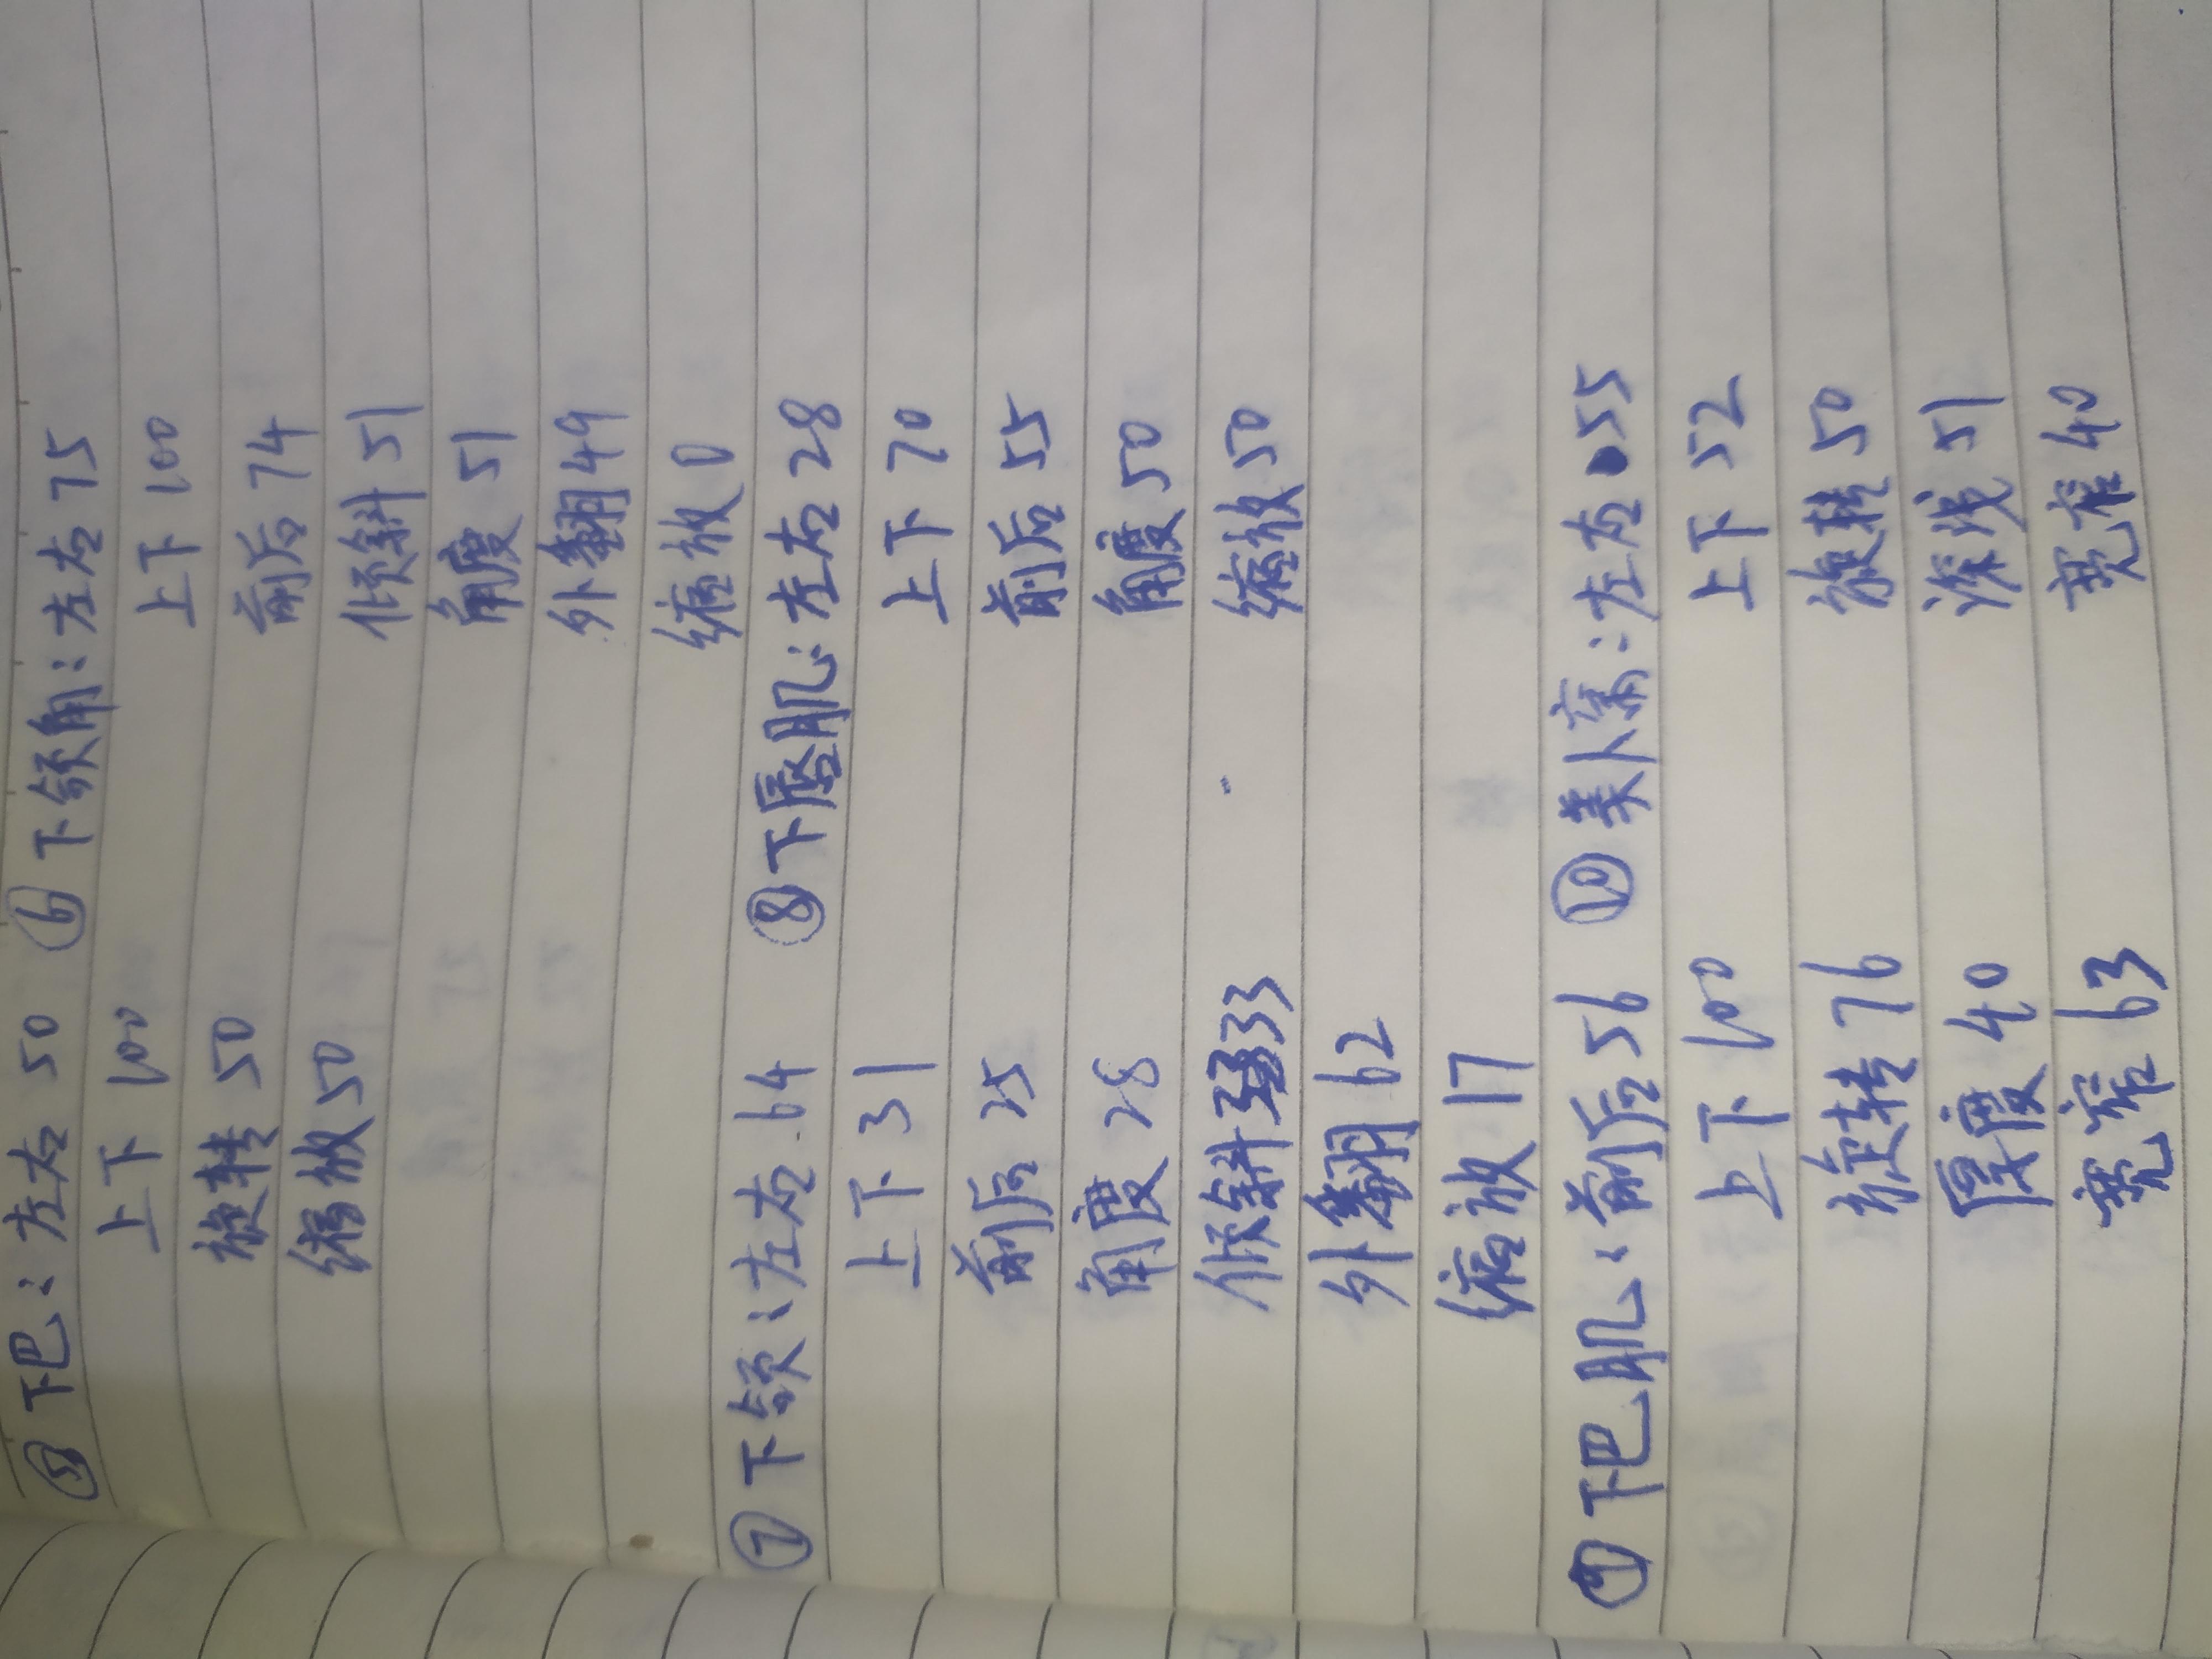 ⑤下巴：左右 50 ⑥下颌角：左右 75
上下 100 上下 100
旋转 50 前后 74
缩放 50 倾斜 51
角度 51
外翻 49
缩放 0
⑦下颌：左右 64 ⑧下唇肌：左右 28
上下 31 上下 70
前后 25 前后 55
角度 28 角度 50
倾斜 33 缩放 50
外翻 62
缩放 17
⑨下巴肌：前后 56 ⑩美人沟：左右 55
上下 100 上下 52
旋转 76 旋转 50
厚度 40 深浅 51
宽窄 63 宽窄 40